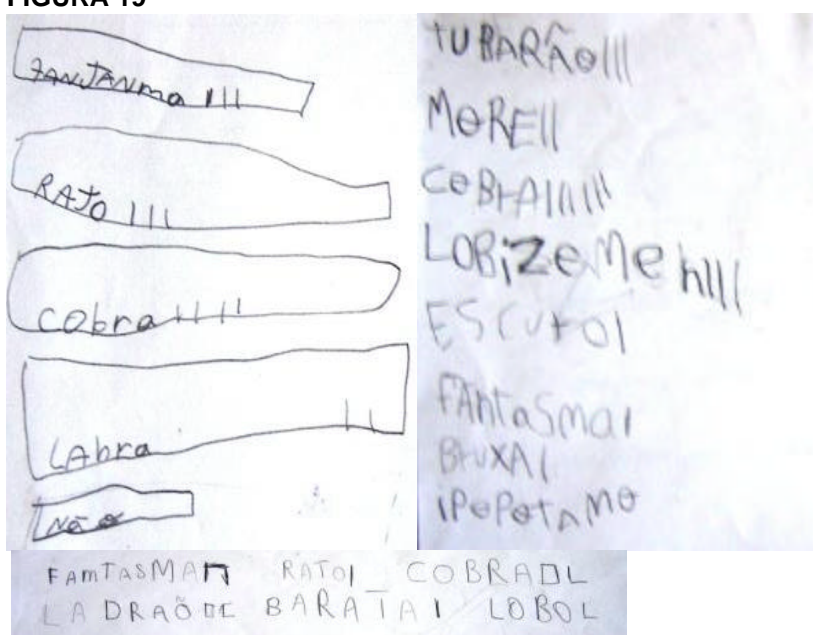 FIGURA 19
FANTANMA III
RATO III
CObra IIIII
LAbra II
NÃO
TUBARÃO III
MORE II
COBRA IIIIII
LOBiZOMeM IIII
ESCURO I
FANtaSMA I
BRUXA I
IPOPOTAMO
FAMTASMA RATO I COBRA L
LADRAÕ BARATA I LOBO L